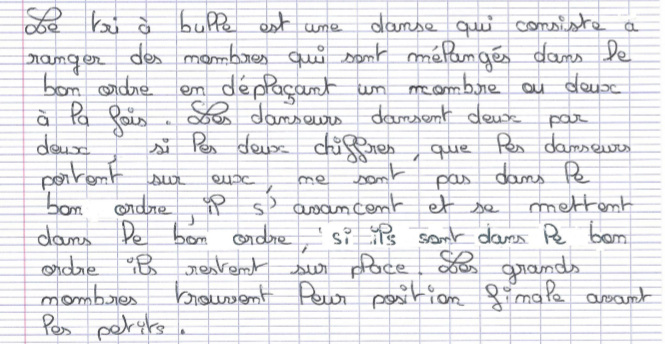 Le tri à bulle est une danse qui consiste a
ranger des nombres qui sont mélangés dans le
bon ordre en déplaçant un nombre ou deux
à la fois. Les danseurs dansent deux par
deux, si les deux chiffres, que les danseurs
portent sur eux, ne sont pas dans le
bon ordre, il s'avancent et se mettent
dans le bon ordre, si ils sont dans le bon
ordre ils restent sur place. Les grands
nombres trouvent leur position finale avant
les petits.